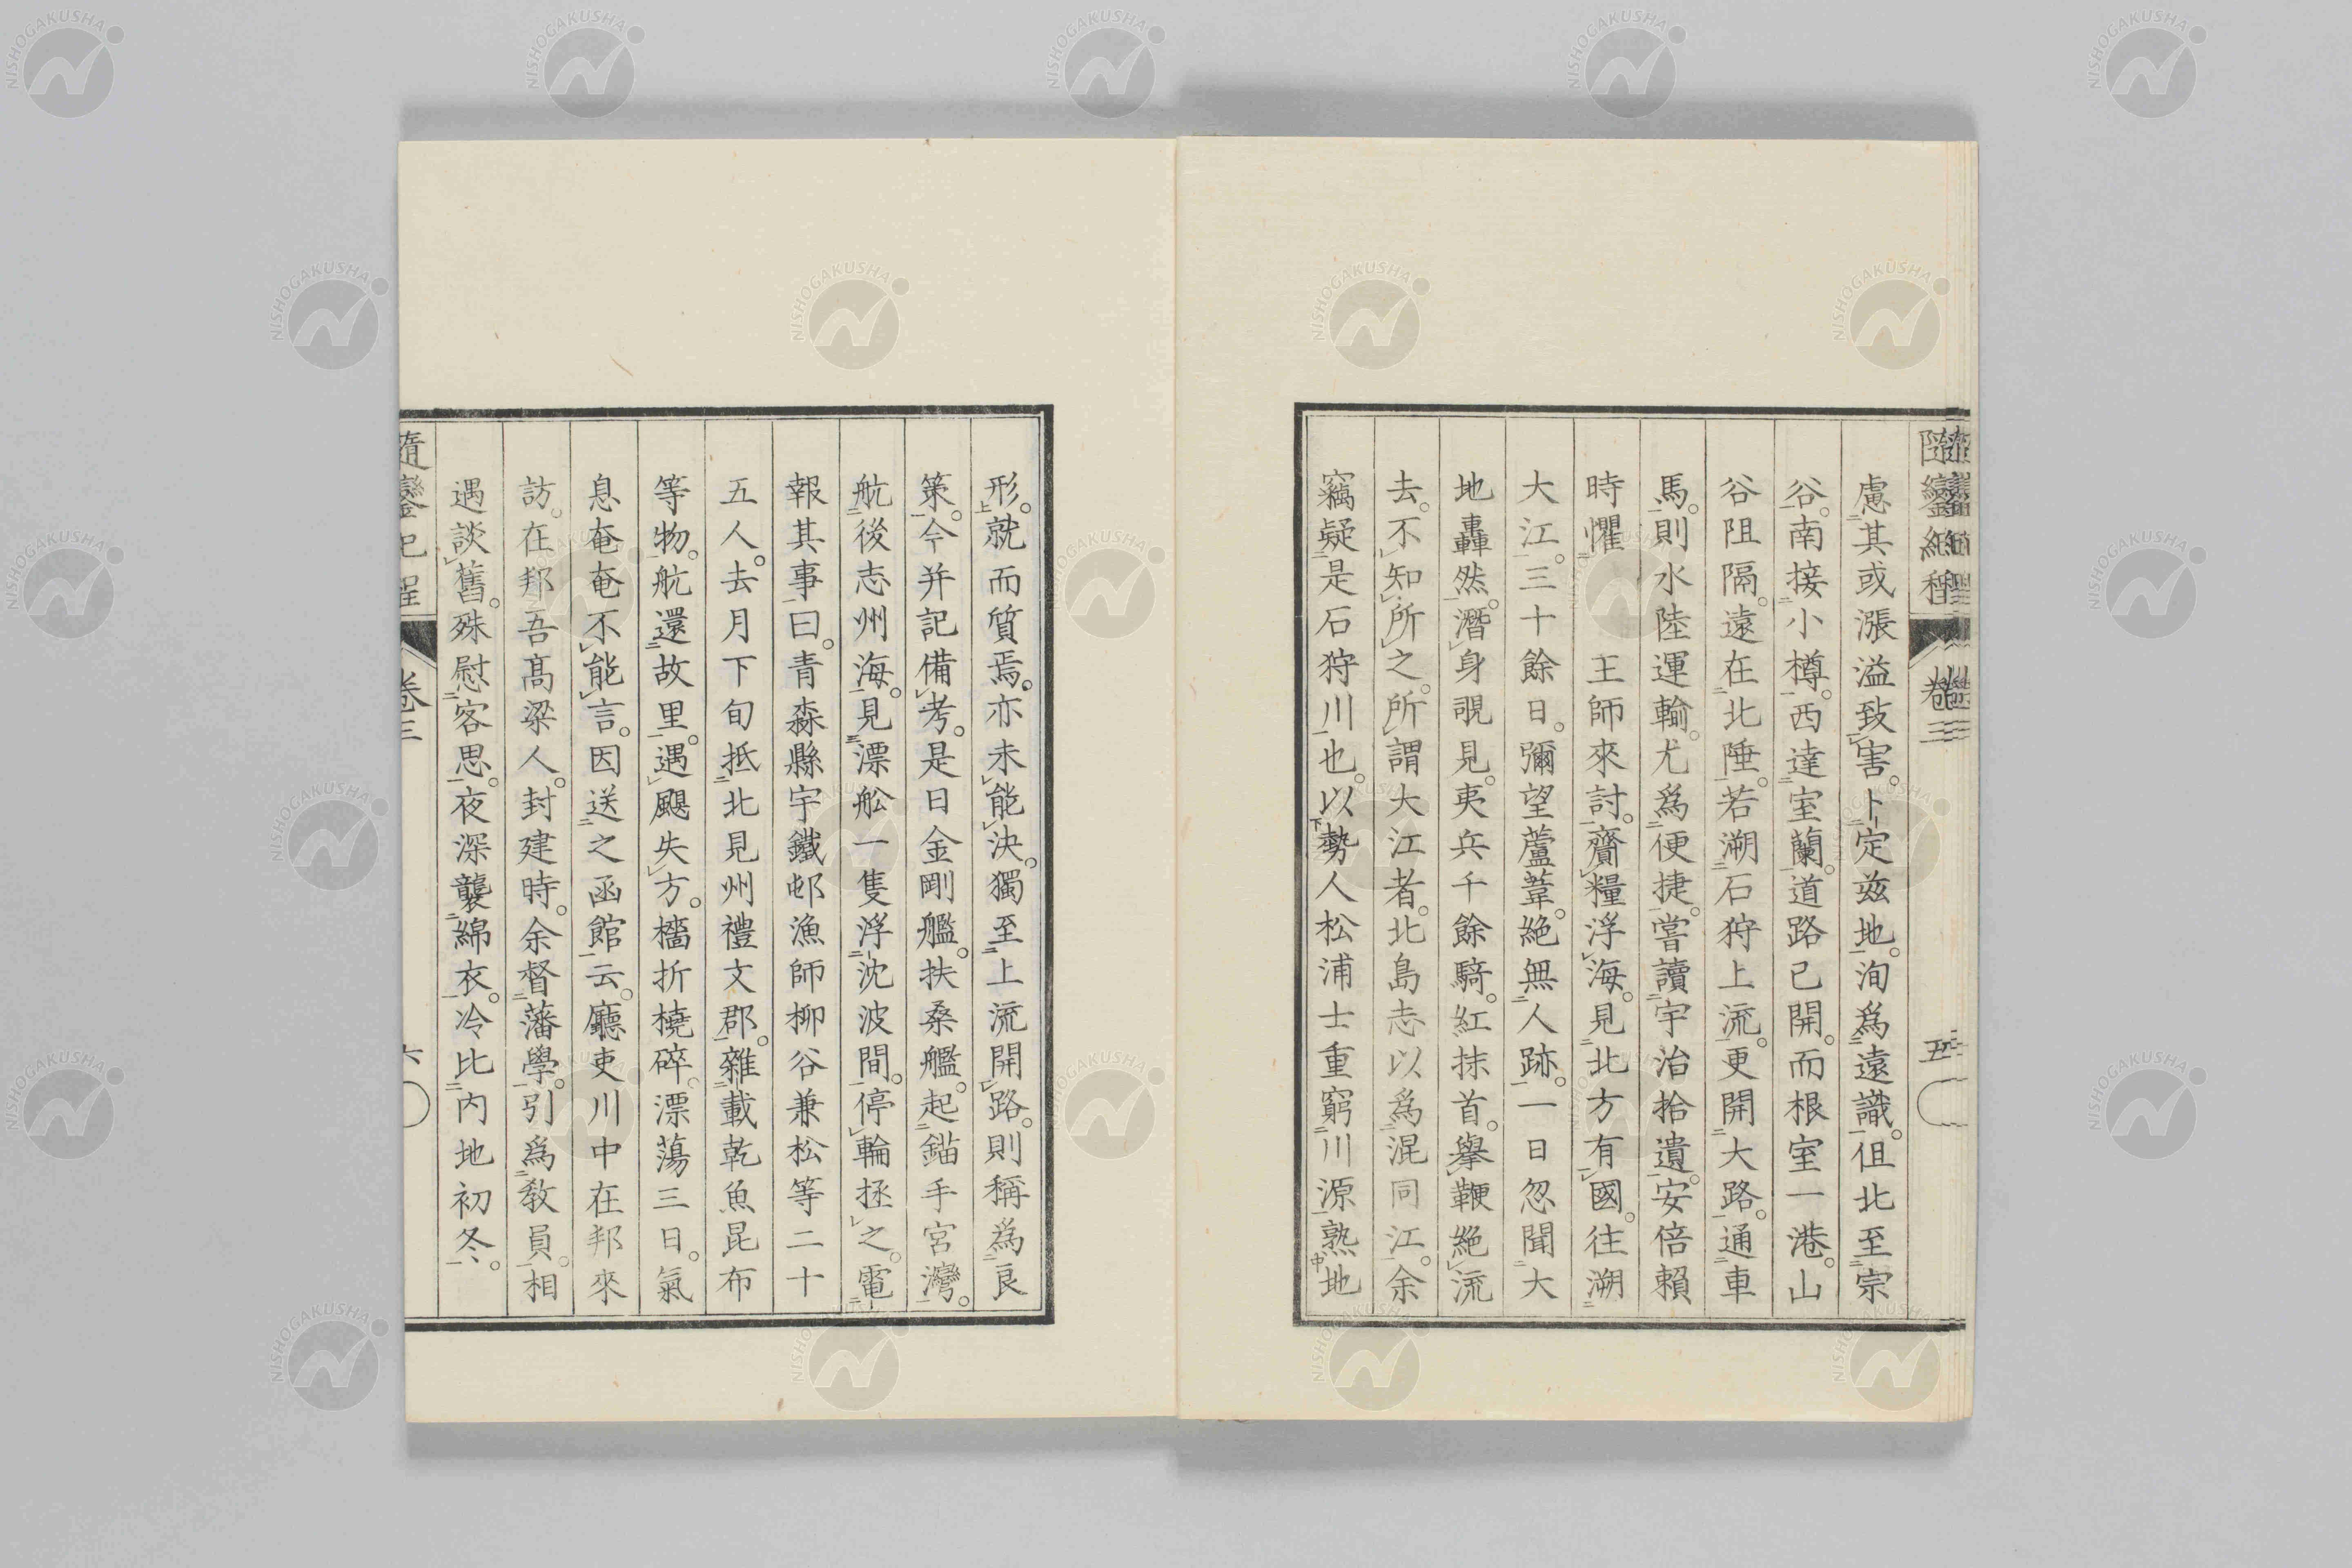 隨鑾紀程 卷三 五
慮其或漲溢致害。卜定玆地。洵爲遠識。但北至宗
谷。南接小樽。西達室蘭。道路已開。而根室一港。山
谷阻隔。遠在北陲。若溯石狩上流。更開大路。通車
馬。則水陸運輸。尤爲便捷。嘗讀宇治拾遺。安倍賴
時懼 王師來討。齎糧浮海。見北方有國。往溯
大江。三十餘日。彌望蘆葦。絶無人跡。一日忽聞大
地轟然。潛身覗見。夷兵千餘騎。紅抹首。擧鞭絶流
去。不知所之。所謂大江者。北島志以爲混同江。余
竊疑是石狩川也。以勢人松浦士重窮川源熟地
形。就而質焉。亦未能決。獨至上流開路。則稱爲良
策。今并記備考。是日金剛艦。扶桑艦。起錨手宮灣。
航後志州海。見漂舩一隻浮沈波間。停輪拯之。電
報其事曰。青森縣宇鐵邨漁師柳谷兼松等二十
五人。去月下旬抵北見州禮文郡。雜載乾魚昆布
等物。航還故里。遇颶失方。檣折橈碎。漂蕩三日。氣
息奄奄不能言。因送之函館云。廳吏川中在邦來
訪。在邦吾高梁人。封建時。余督藩學。引爲敎員。相
遇談舊。殊慰客思。夜深襲綿衣。冷比内地初冬。
隨鑾紀程 卷三 六